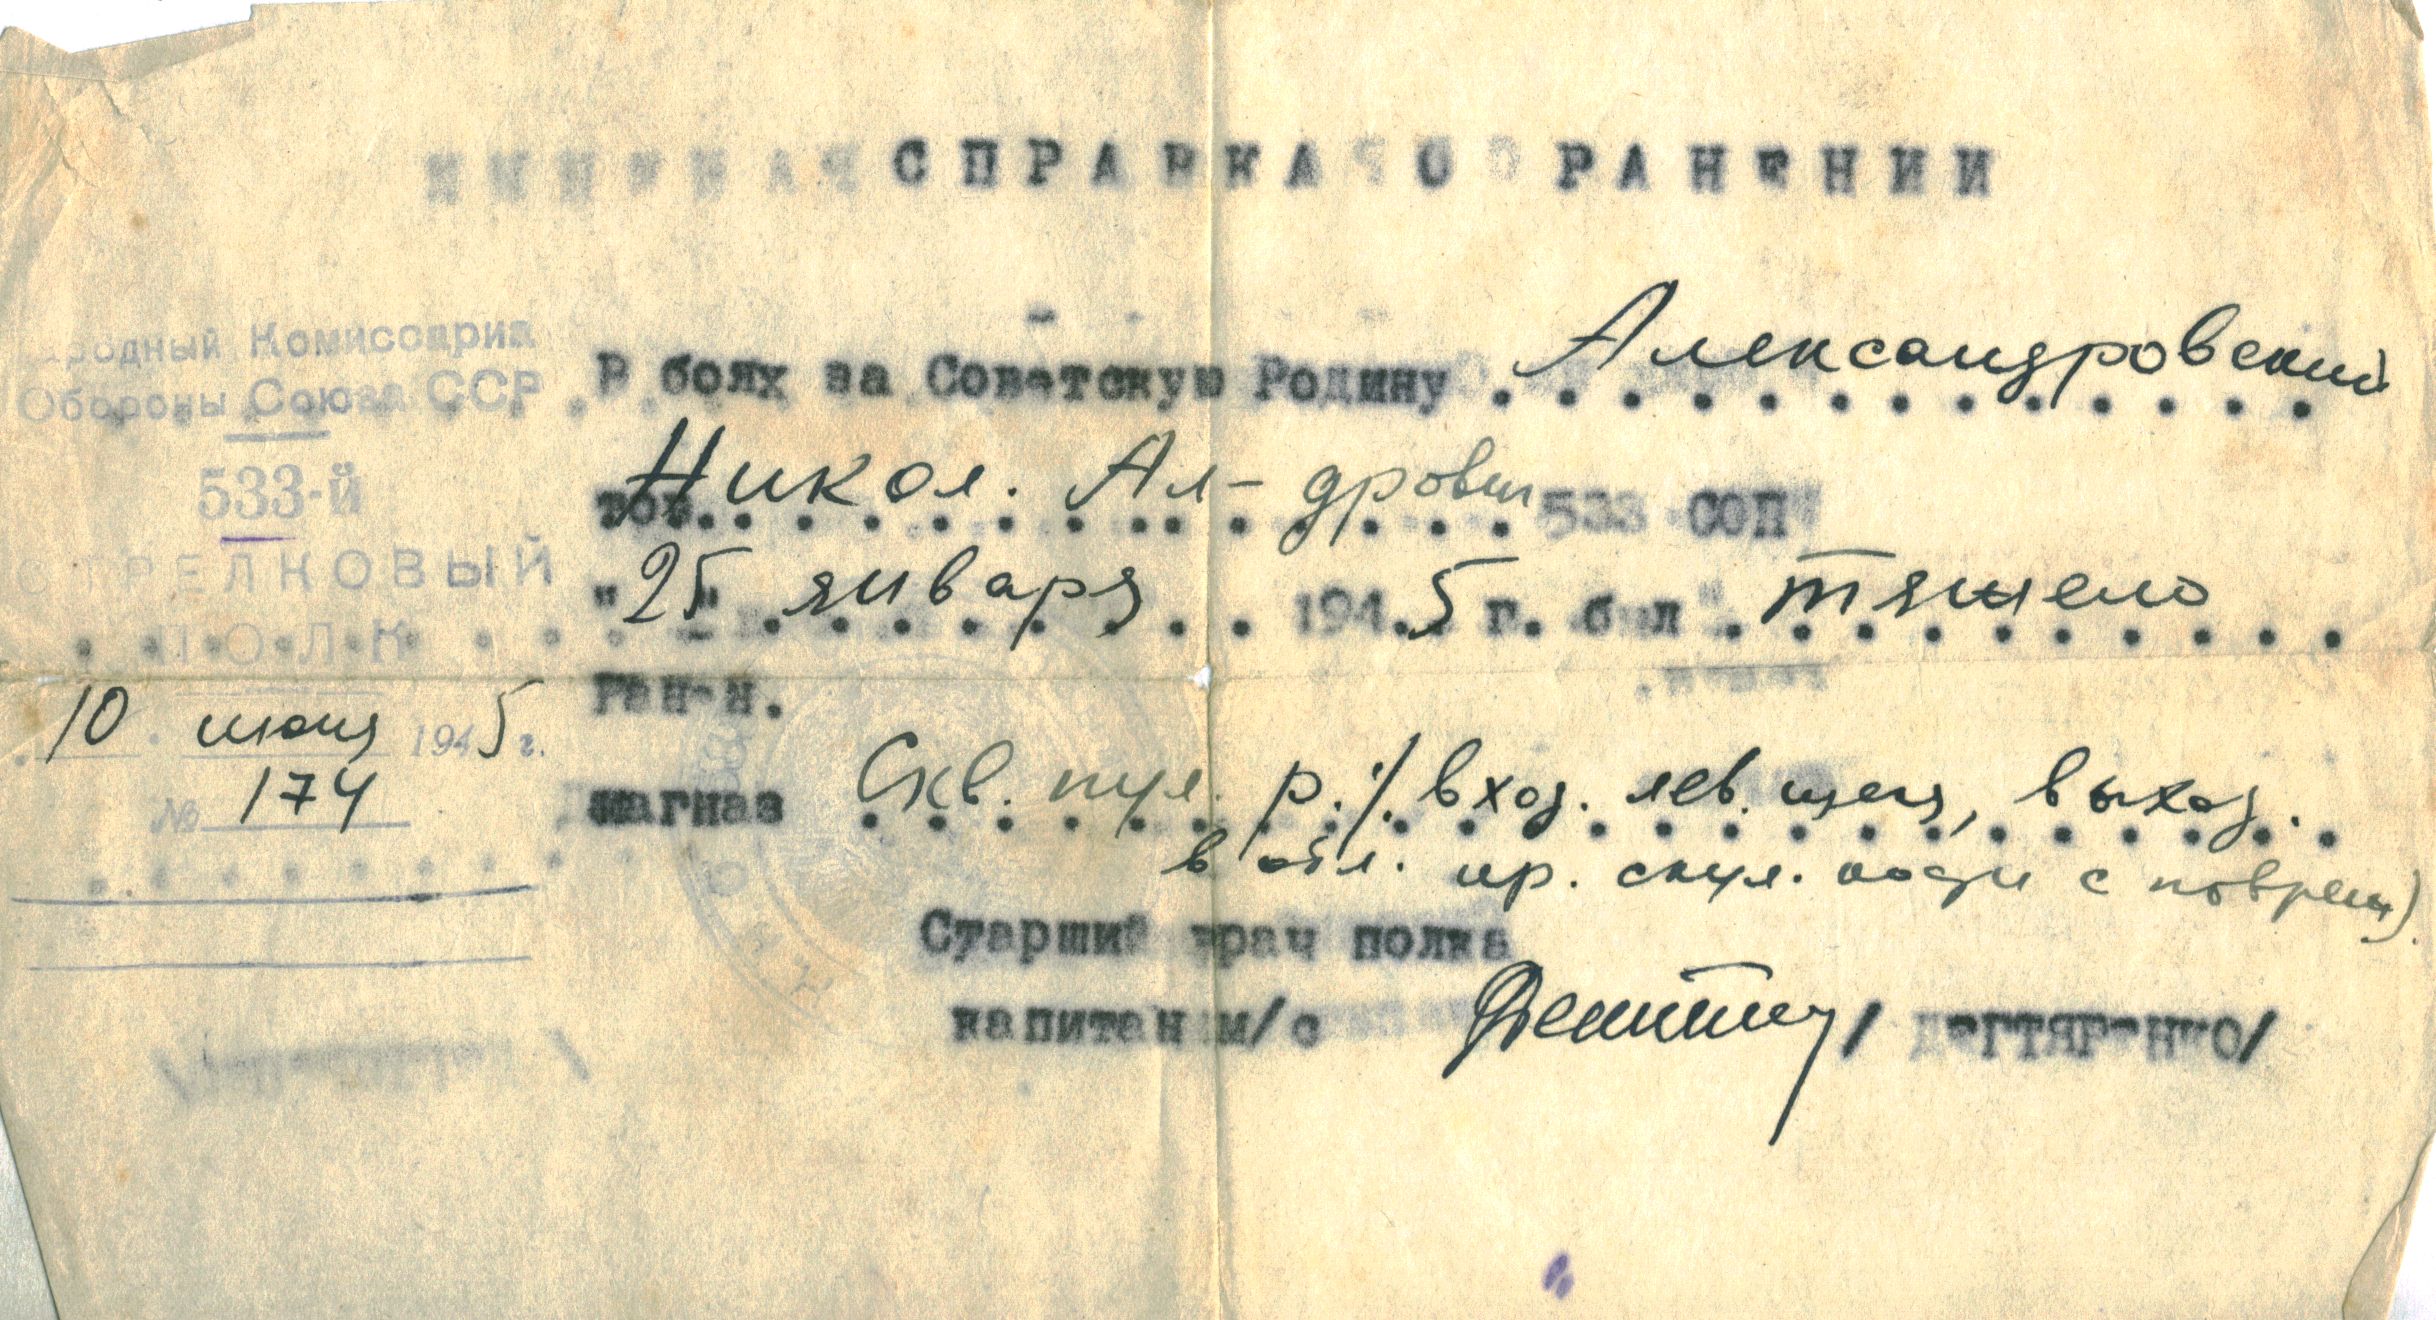 СПРАВКА О РАНЕНИИ
Народный Комиссариа
Обороны Союза ССР
533-й
СТРЕЛКОВЫЙ
ПОЛК
10 июня 1945 г.
№ 174
В боях за Советскую Родину Александровский
тов. Никол. Ал-дрович 533 СОП
"25" января 1945 г. был тяжело
ранен.
Диагноз Скв. пул. р. /вход. лев. щека, выход.
в обл. пр. скул. кости с поврежд)
Старший врач полка
капитан м/с /ДЕГТЯРЕНКО/